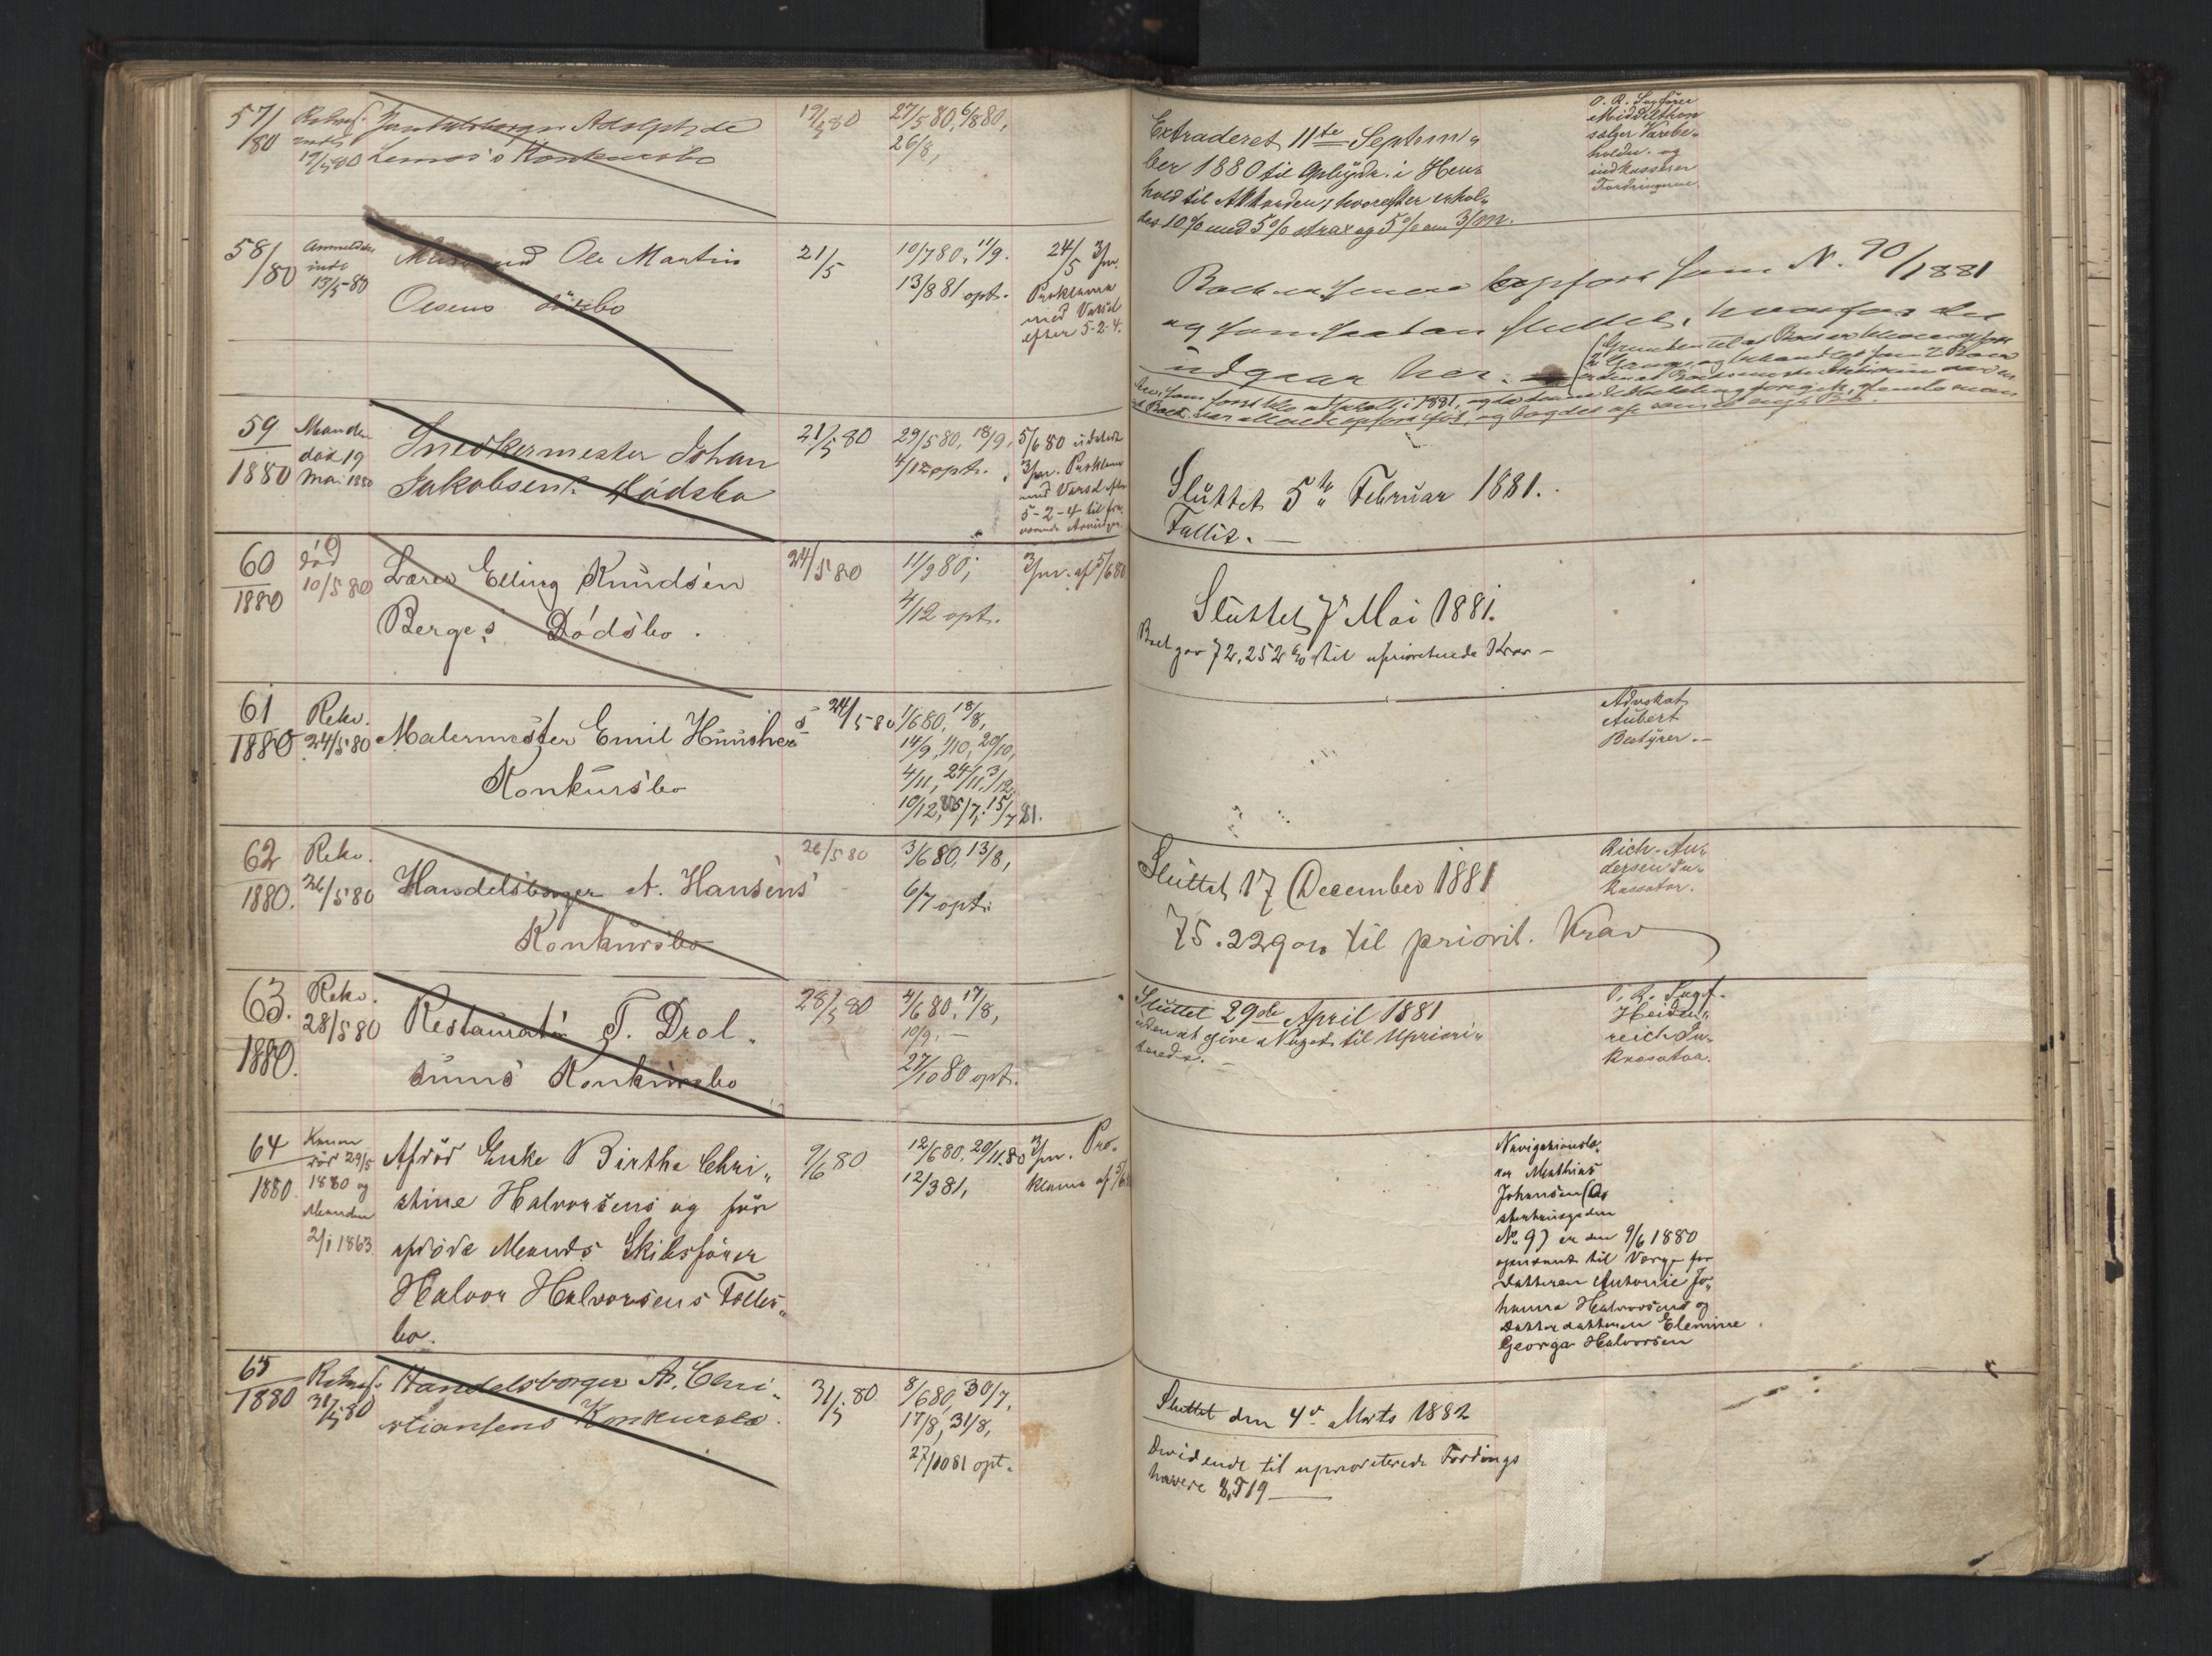 57/80
19/5 80
Adolph de
Konkursbo
19/5 80
27/5 80, 6/8 80,
26/8,
Extraderet 11te Septem„
ber 1880 til
hold til Akkorden, hvorefter erhol„
des 10% med 5% strax og 5% om 3/m.
O. R. Sagfører
Middelthon
sælger Varebe„
holdn. og
indkasserer
Fordringerne.
58/80
Anmeldelse
indk
13/5-80
Ole Martin
Olsens Dødsbo
21/5
10/7 80, 11/9.
13/8 81 opt.
24/5 3/m.
Proklama
med Varsel
efter 5-2-4.
Boet er senere opført som N. 90/1881
og som saadan sluttet, hvorfor det
udgaar her.
59
1880
Manden
død 19
Mai 1880
Snedkermester Johan
Jakobsens Dødsbo
21/5 80
29/5 80, 18/9,
4/12 opt.
5/6 80 udstedt
3/m. Proklama
med Varsel efter
5-2-4 til fra„
værende Arvinger.
Sluttet 5te Februar 1881.
Fallit.
60
1880
død
10/5 80
Lærer Elling Knudsen
Berges Dødsbo.
24/5 80
11/9 80,
4/12 opt.
3/m. af 5/6 80
Sluttet 7de Mai 1881.
Boet gav 72,252 % til uprioriterede Krav
61
1880
Rekv.
24/5 80
Malermester Emil
Konkursbo
24/5 80
1/6 80, 18/8,
14/9, 1/10, 20/10,
4/11, 24/11, 3/12,
10/12, 15/7 81.
Advokat
Aubert
Bestyrer.
62
1880.
Rekv.
26/5 80
Handelsborger A. Hansens
Konkursbo
26/5 80
3/6 80, 13/8,
6/7 opt.
Sluttet 17 December 1881
75.229 o/o til priorit. Krav
Rich. An„
dersen In„
kassator.
63.
1880.
Rekv.
28/5 80
Restauratør T. Drol„
sums Konkursbo
28/5 80
4/6 80, 17/8,
10/9,
27/10 80 opt.
Sluttet 29de April 1881
uden at give Noget til Upriori„
terede.
O. R. Sagf.
Heiden„
reich In„
kassator.
64
1880.
Konen
død 29/5
1880 og
Manden
2/1 1863
Afdød Enke Birthe Chri„
stine Halvorsens og før
afdøde Mands Skibsfører
Halvor Halvorsens Fælles„
bo.
9/6 80
12/6 80, 20/11 80
12/3 81,
3/m. Pro„
klama af 5/6
Navigationslæ„
rer Mathias
Johansen
No 9) er den 9/6 1880
opnævnt til Verge for
Datteren Antonie Jo„
hanna Halvorsens og
Datterdatteren Elemine
Georga Halvorsen
65
1880
31/5 80
Handelsborger A. Chri„
stiansens Konkursbo.
31/5 80
8/6 80, 30/7,
17/8, 31/8,
27/10 81 opt.
Sluttet den 4de Marts 1882
Dividende til uprioriterede Fordrings
havere 8,519